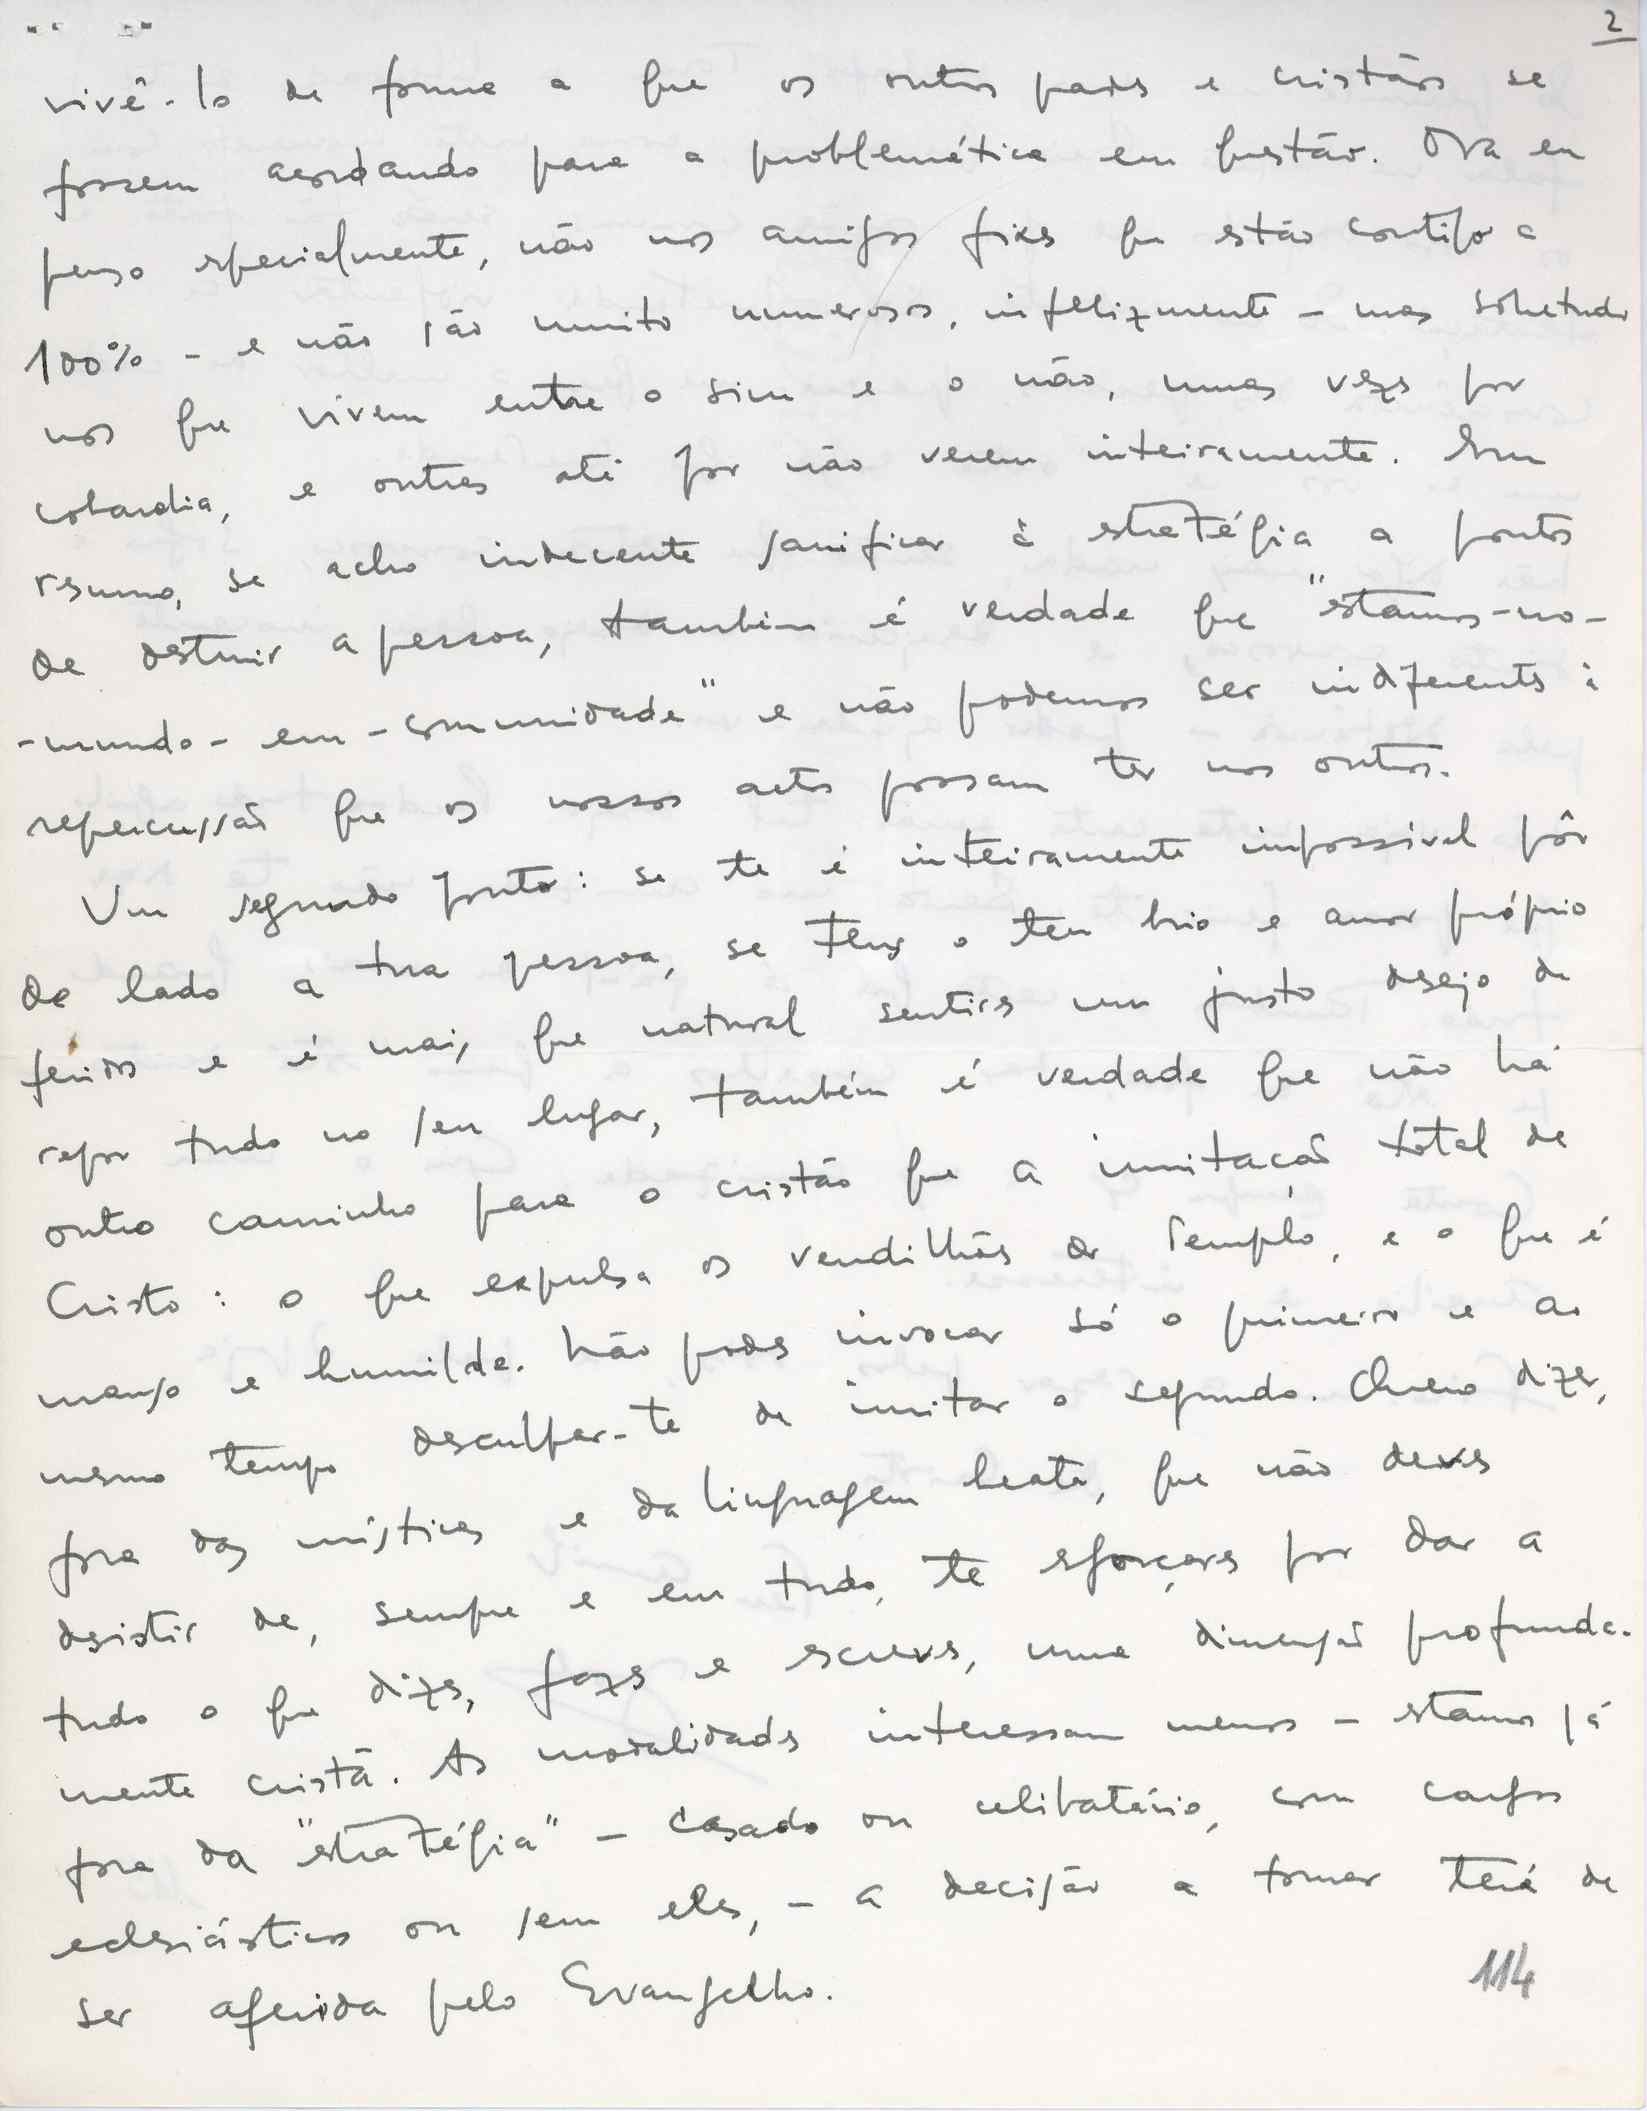 2
vivê-lo de forma a que os outros padres e cristãos se
fossem acordando para a problemática em questão. Ora eu
penso especialmente, não nos amigos fixes que estão contigo a
100% - e não são muito numerosos, infelizmente - mas sobretudo
nos que vivem entre o sim e o não, umas vezes por
cobardia, e outras até por não verem inteiramente. Em
resumo, se acho indecente sacrificar à estratégia a pontos
de destruir a pessoa, também é verdade que "estamos-no-
-mundo-em-comunidade" e não podemos ser indiferentes à
repercussão que os nossos actos possam ter nos outros.
Um segundo ponto: se te é inteiramente impossível pôr
de lado a tua pessoa, se tens o teu brio e amor próprio
feridos e é mais que natural sentires um justo desejo de
repor tudo no seu lugar, também é verdade que não há
outro caminho para o cristão que a imitação total de
Cristo: o que expulsa os vendilhões do Templo, e o que é
manso e humilde. Não podes invocar só o primeiro e ao
mesmo tempo desculpar-te de imitar o segundo. Quero dizer,
fora das místicas e da linguagem beata, que não deves
desistir de, sempre e em tudo, te esforçares por dar a
tudo o que dizes, fazes e escreves, uma dimensão profunda-
mente cristã. As modalidades interessam menos - estamos já
fora da "estratégia" - casado ou celibatário, com cargos
eclesiásticos ou sem eles, - a decisão a tomar terá de
ser aferida pelo Evangelho.
114